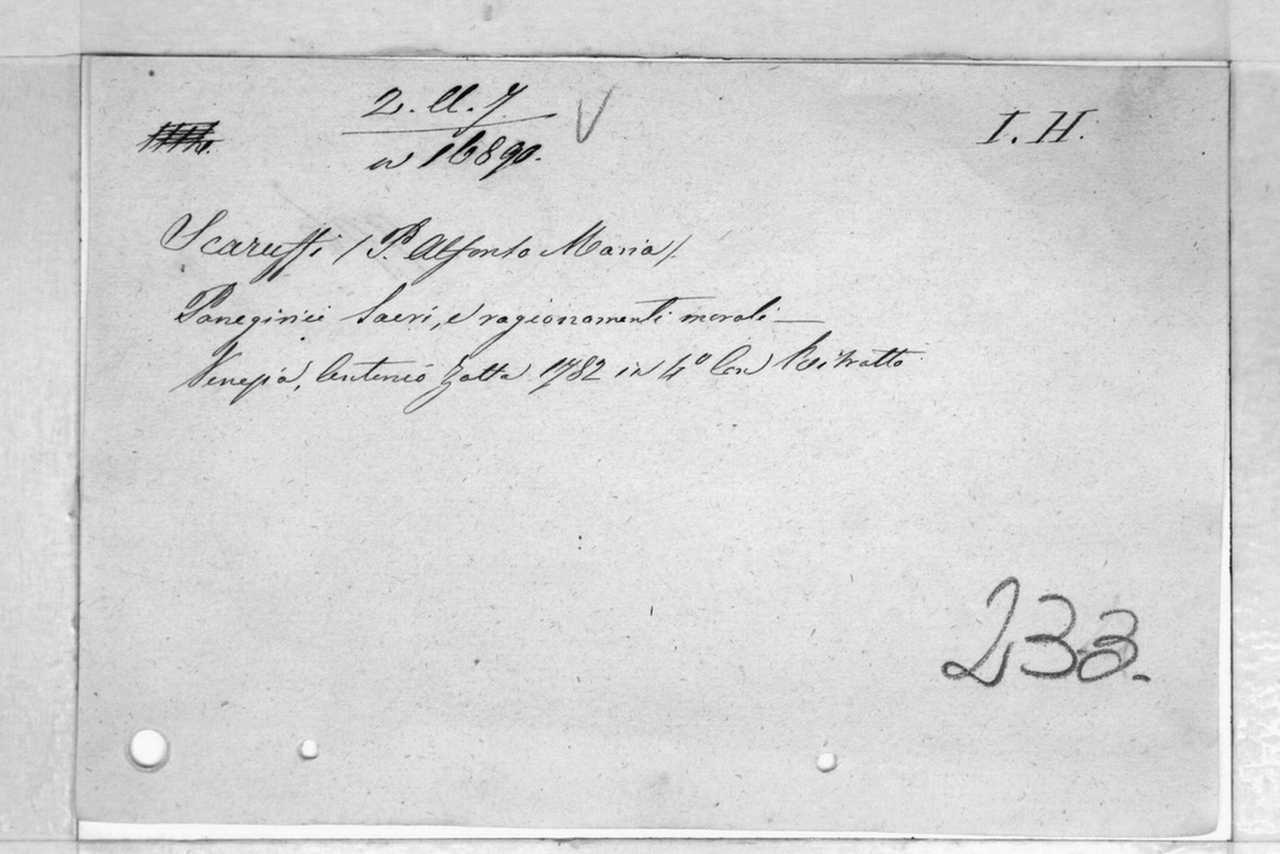 2. U. 7. V
n 16890.
I. H.
Scaruffi / P. Alfonso Maria /.
Panegirici Sacri, e ragionamenti morali —
Venezia, Antonio Zatta 1782 in 4º Con Ritratto
233.